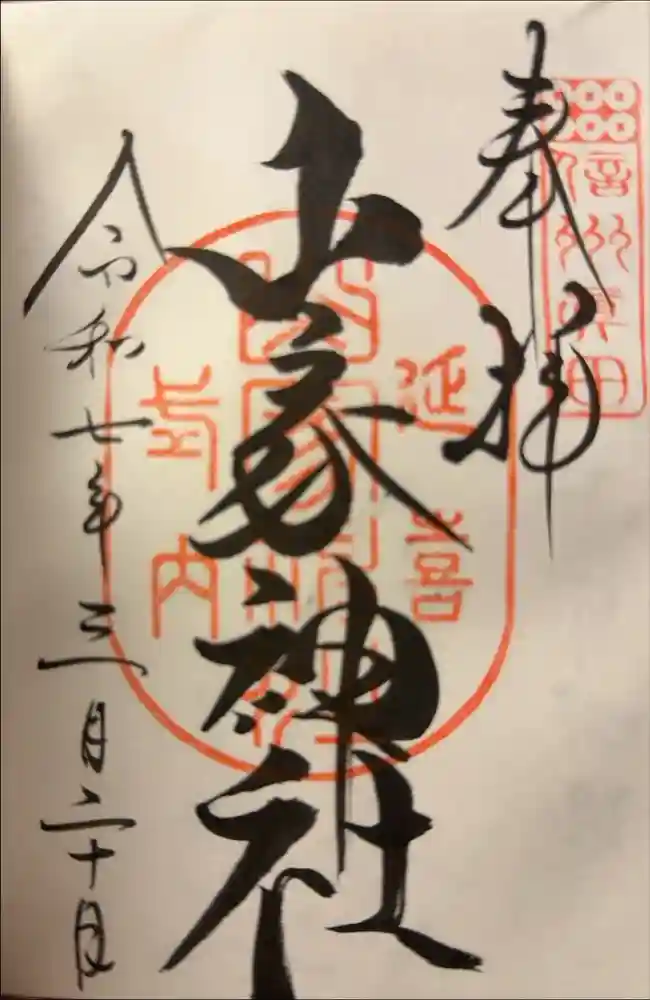 信州眞田
奉拝
延喜
山家神社
式内
令和七年三月二十日